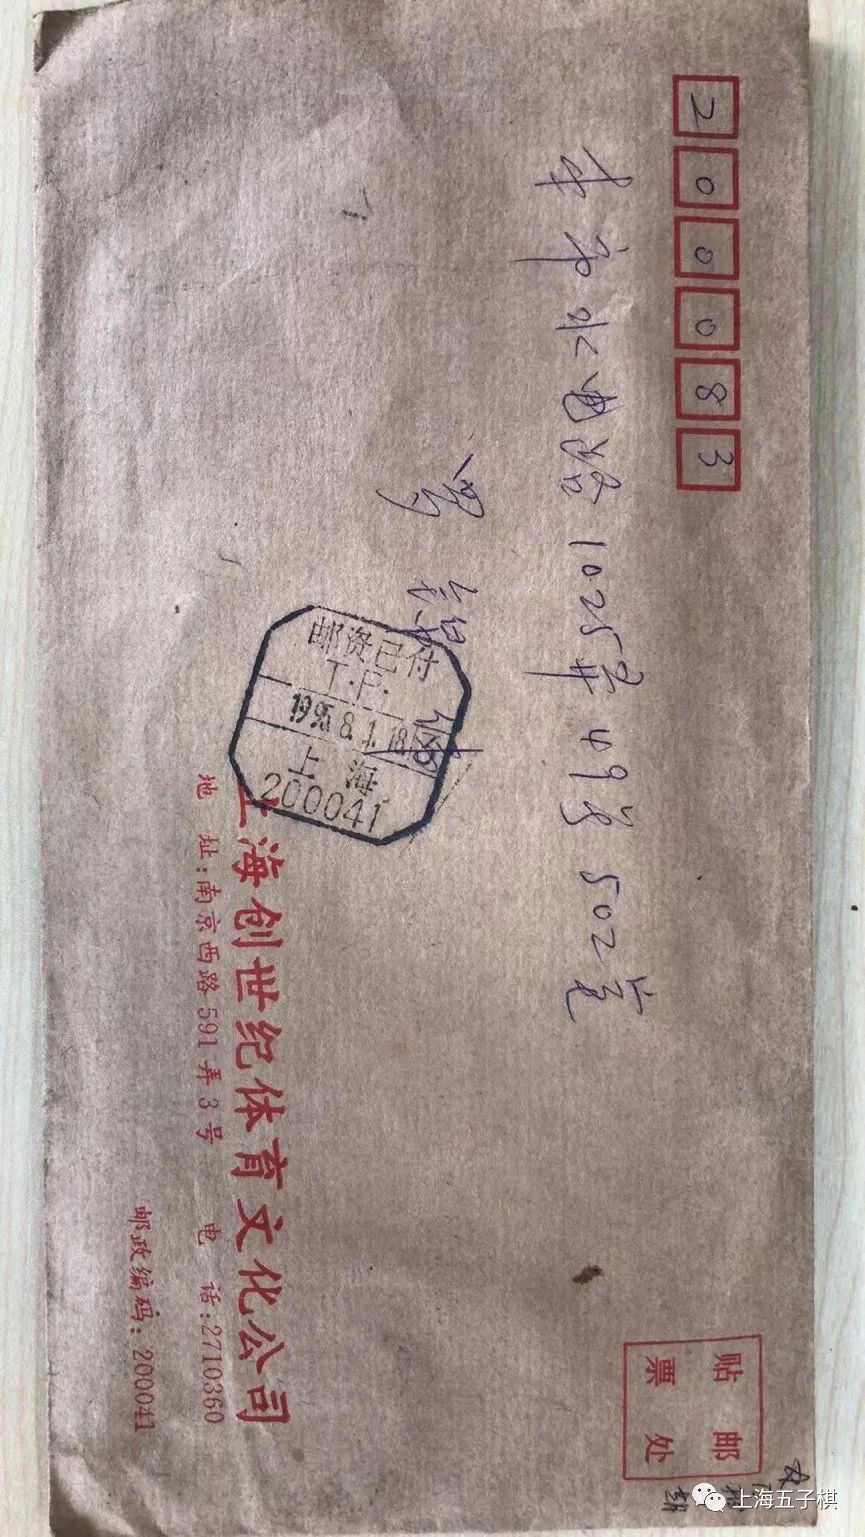 200083
本市水电路1025弄49号502室
邮资已付
T.P.
1995.8.1.18
上海
200041
贴邮
票处
上海创世纪体育文化公司
地 址:南京西路591弄3号 电 话:2710360
邮政编码:200041
上海五子棋